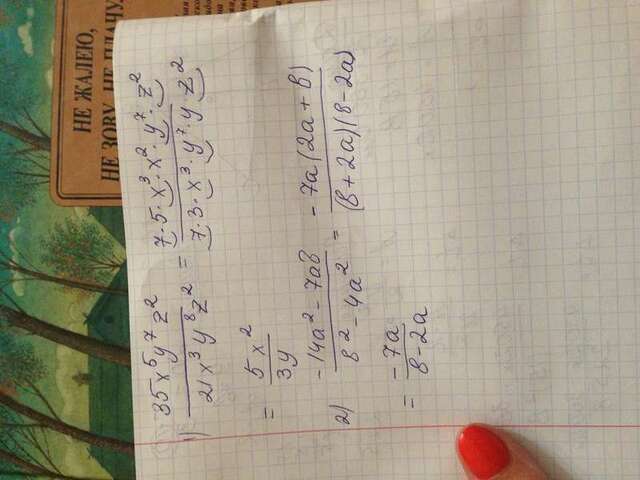 НЕ ЖАЛЕЮ,
НЕ ЗОВУ, НЕ ПЛАЧУ
1) 35x⁵y⁷z² / 21x³y⁸z² = 7·5·x³·x²·y⁷·z² / 7·3·x³·y⁷·y·z²
= 5x² / 3y
2) -14a²-7aв / в²-4a² = -7a(2a+в) / (в+2a)(в-2a)
= -7a / в-2a